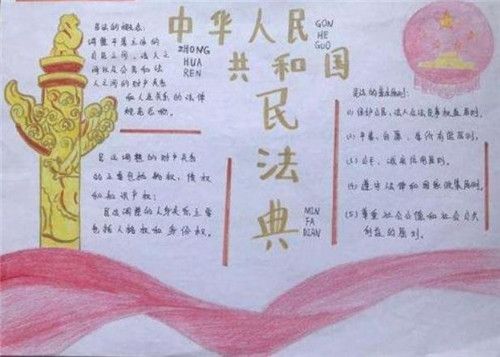 中华人民
共和国
民法典
ZHONG
HUA
REN
GON
HE
GUO
MIN
FA
DIAN
民法的概念:
调整平等主体的
自然人之间、法人之
间以及公民和法
人之间的财产关系
和人身关系的法律
规范总称。
民法调整的财产关系
的主要包括物权,债权
和知识产权:
民法调整的人身关系主要
包括人格权和身份权。
民法的基本原则:
(1) 保护公民、法人合法民事权益原则;
(2) 平等、自愿、等价有偿原则.
(3) 公平、诚实信用原则.
(4) 遵守法律和国家政策原则.
(5) 尊重社会公德和社会公共
利益的原则.